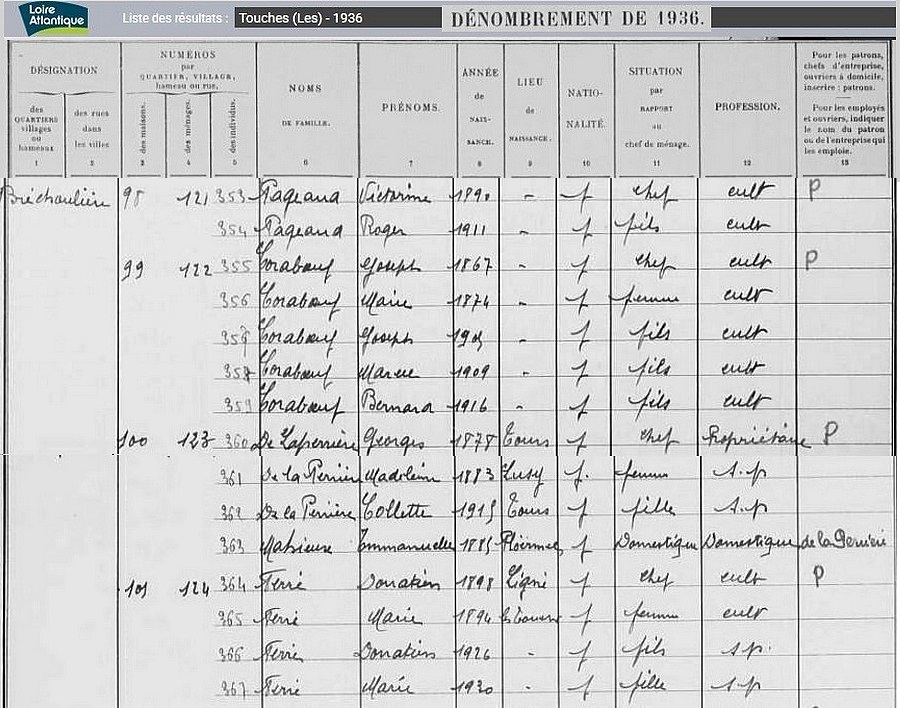 Loire
Atlantique
Liste des résultats :
Touches (Les) - 1936
DÉNOMBREMENT DE 1936.
DÉSIGNATION
des QUARTIERS villages ou hameaux
des rues dans les villes
NUMÉROS
par
QUARTIER, VILLAGE,
hameau ou rue.
des maisons.
des ménages.
des individus.
NOMS
DE FAMILLE.
PRÉNOMS.
ANNÉE
de
NAIS-
SANCE.
LIEU
de
NAISSANCE.
NATIO-
NALITÉ.
SITUATION
par
RAPPORT
au
chef de ménage.
PROFESSION.
Pour les patrons,
chefs d'entreprise,
ouvriers à domicile,
inscrire : patrons.
Pour les employés
et ouvriers, indiquer
le nom du patron
ou de l'entreprise qui
les emploie.
1 2 3 4 5 6 7 8 9 10 11 12 13
Bréchoulière 98 121 353 Pageaud Victorine 1890 - f chef cult P
354 Pageaud Roger 1911 - f fils cult
99 122 355 Coraboeuf Joseph 1867 - f chef cult P
356 Coraboeuf Marie 1874 - f femme cult
357 Coraboeuf Joseph - f fils cult
358 Coraboeuf 1909 - f fils cult
359 Coraboeuf Bernard 1916 - f fils cult
100 123 360 De Laperrière Georges 1878 Tours f chef Propriétaire P
361 De la Perrière Madeleine 1883 Luzy f. femme s.p
362 De la Perrière Collette 1915 Tours f fille s.p
363 Emmanuelle 1885 Ploërmel f Domestique Domestique de la Perrière
101 124 364 Ferré Donatien 1898 Ligné f chef cult P
365 Ferré Marie 1894 f femme cult
366 Ferré Donatien 1926 - f fils s.p.
367 Ferré Marie 1930 - f fille s.p